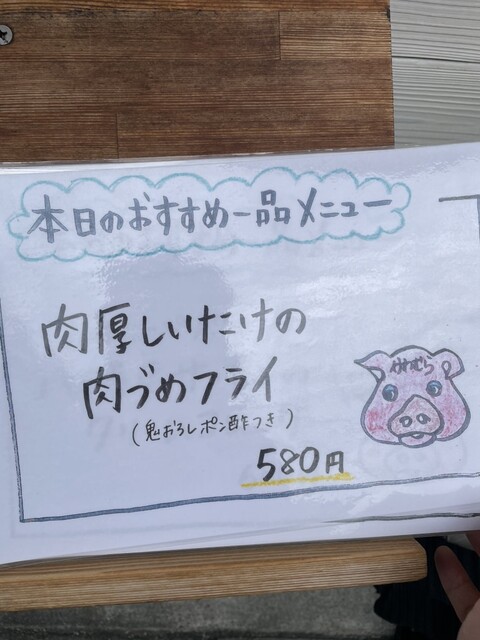 本日のおすすめ一品メニュー
肉厚しいたけの
肉づめフライ
(鬼おろしポン酢つき)
580円
かわむら